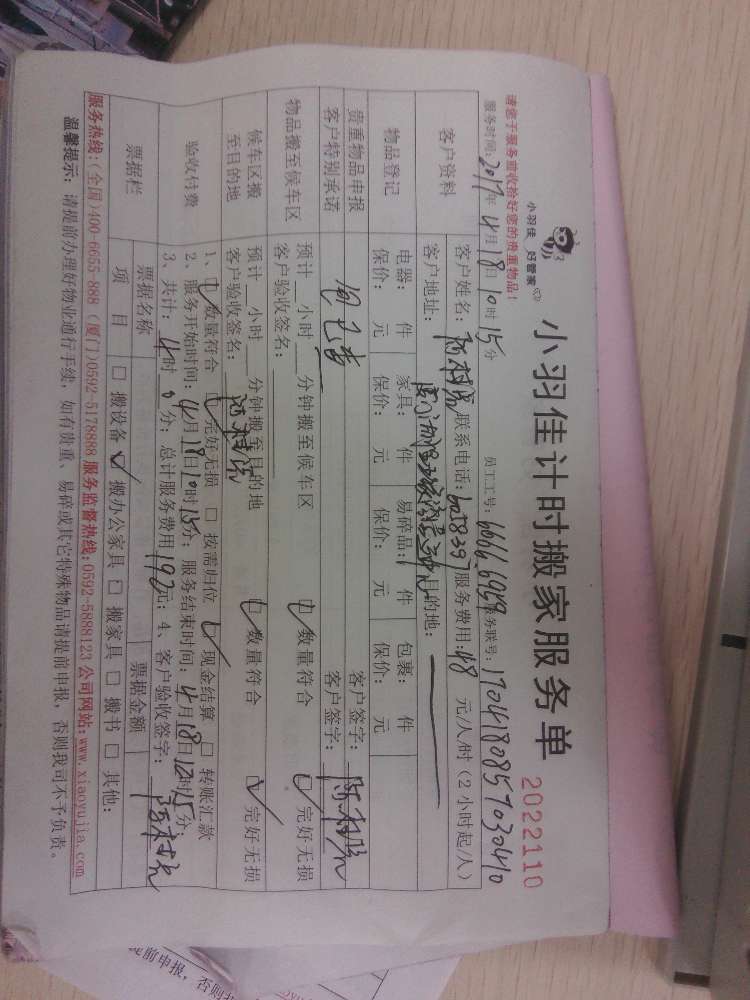 小羽佳 好管家
小羽佳计时搬家服务单
2022110
请您于服务验收拾好您的贵重物品!
服务时间:2017年4月18日10时15分 员工工号:6666.6959 服务联号:170418085703040
客户资料
客户姓名: 联系电话:6078397 服务费用:48 元/人/时(2小时起/人)
客户地址: 目的地:
物品登记
电器: 件 家具: 件 易碎品: 件 包裹: 件
保价: 元 保价: 元 保价: 元 保价: 元
贵重物品申报 客户签字:
客户特别承诺 客户签字:
物品搬至候车区
预计 小时 分钟搬至候车区 数量符合 完好无损
客户验收签名:
候车区搬至目的地
预计 小时 分钟搬至目的地 数量符合 完好无损
客户验收签名:
验收付费
1、数量符合 完好无损 □ 按需归位 现金结算 □ 转账汇款
2、服务开始时间:4月18日10时15分;服务结束时间:4月18日12时15分;
3、共计:4时0分;总计服务费用192元;4、客户验收签字:
票据栏
票据名称 票据金额
项目 □ 搬设备 ✓ 搬办公家具 □ 搬家具 □ 搬书 □ 其他:
服务热线:(全国)400-6655-888 (厦门)0592-5178888 服务监督热线:0592-5888123 公司网站:www.xiaoyujia.com
温馨提示:请提前办理好物业通行手续,如有贵重、易碎或其它特殊物品请提前申报,否则我司不予负责。
提前申报,否则